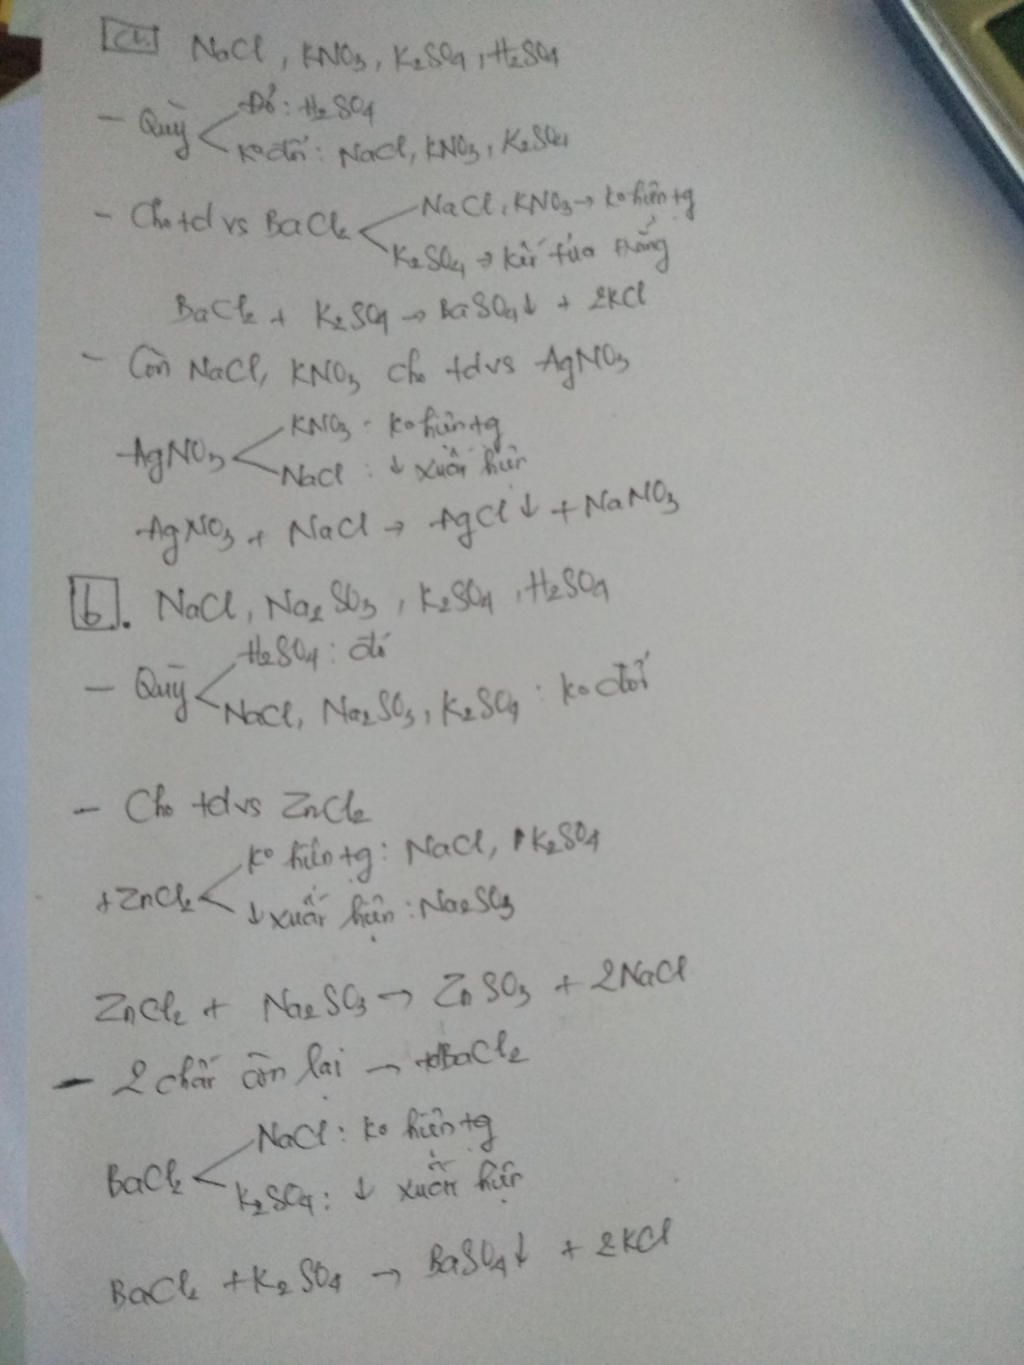 a. NaCl, KNO3, K2SO4, H2SO4
- Quỳ < Đỏ: H2SO4
Ko đổi: NaCl, KNO3, K2SO4
- Cho td vs BaCl2 < NaCl, KNO3 → ko hiện tg
K2SO4 → kết tủa trắng
BaCl2 + K2SO4 → BaSO4↓ + 2KCl
- Còn NaCl, KNO3 cho td vs AgNO3
AgNO3 < KNO3 : ko hiện tg
NaCl : ↓ xuất hiện
AgNO3 + NaCl → AgCl↓ + NaNO3
b. NaCl, Na2SO3, K2SO4, H2SO4
- Quỳ < H2SO4: đỏ
NaCl, Na2SO3, K2SO4 : ko đổi
- Cho td vs ZnCl2
+ ZnCl2 < ko hiện tg: NaCl, K2SO4
↓ xuất hiện : Na2SO3
ZnCl2 + Na2SO3 → ZnSO3 + 2NaCl
- 2 chất còn lại → td BaCl2
BaCl2 < NaCl: ko hiện tg
K2SO4: ↓ xuất hiện
BaCl2 + K2SO4 → BaSO4↓ + 2KCl